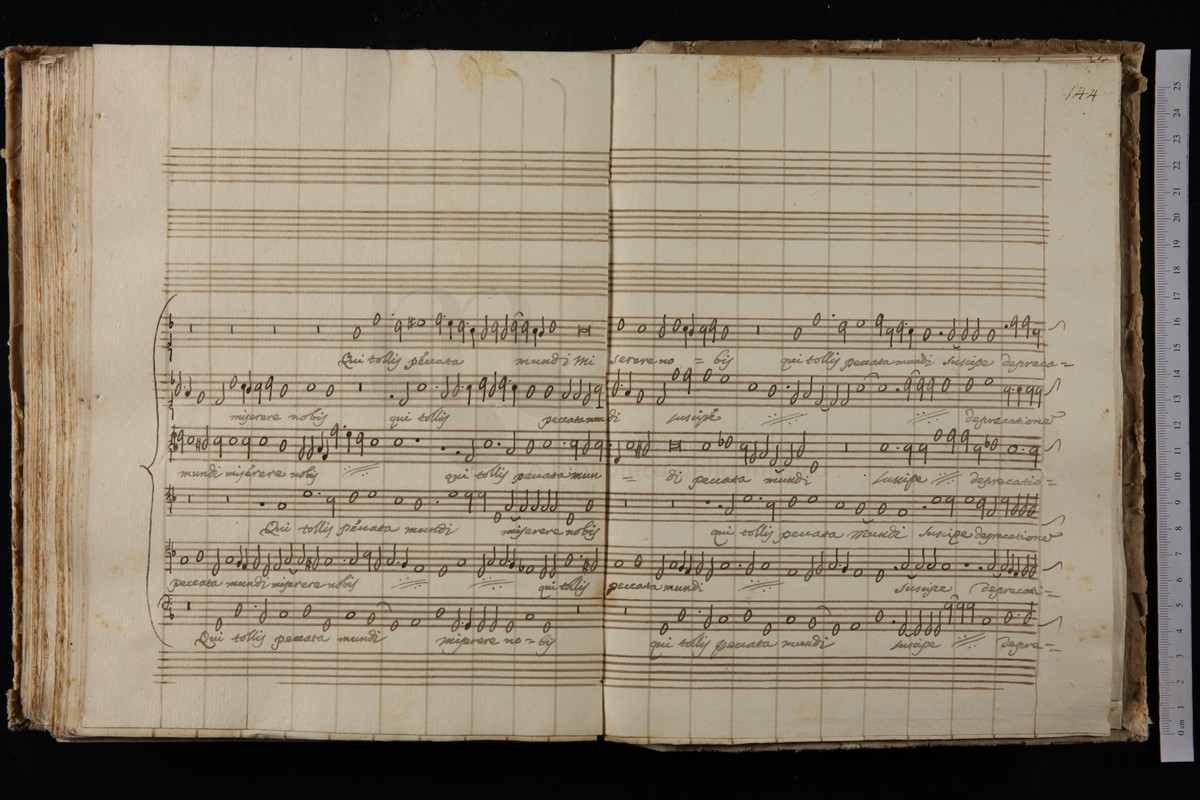 144
Qui tollis peccata mundi mi serere no = bis qui tollis peccata mundi suscipe depreca=
miserere nobis qui tollis peccata mundi suscipe deprecatione
mundi miserere nobis qui tollis peccata mun = di peccata mundi suscipe deprecatio=
Qui tollis peccata mundi miserere nobis qui tollis peccata mundi suscipe deprecatione
peccata mundi miserere nobis qui tollis peccata mundi suscipe deprecati=
Qui tollis peccata mundi miserere no=bis qui tollis peccata mundi suscipe depre=